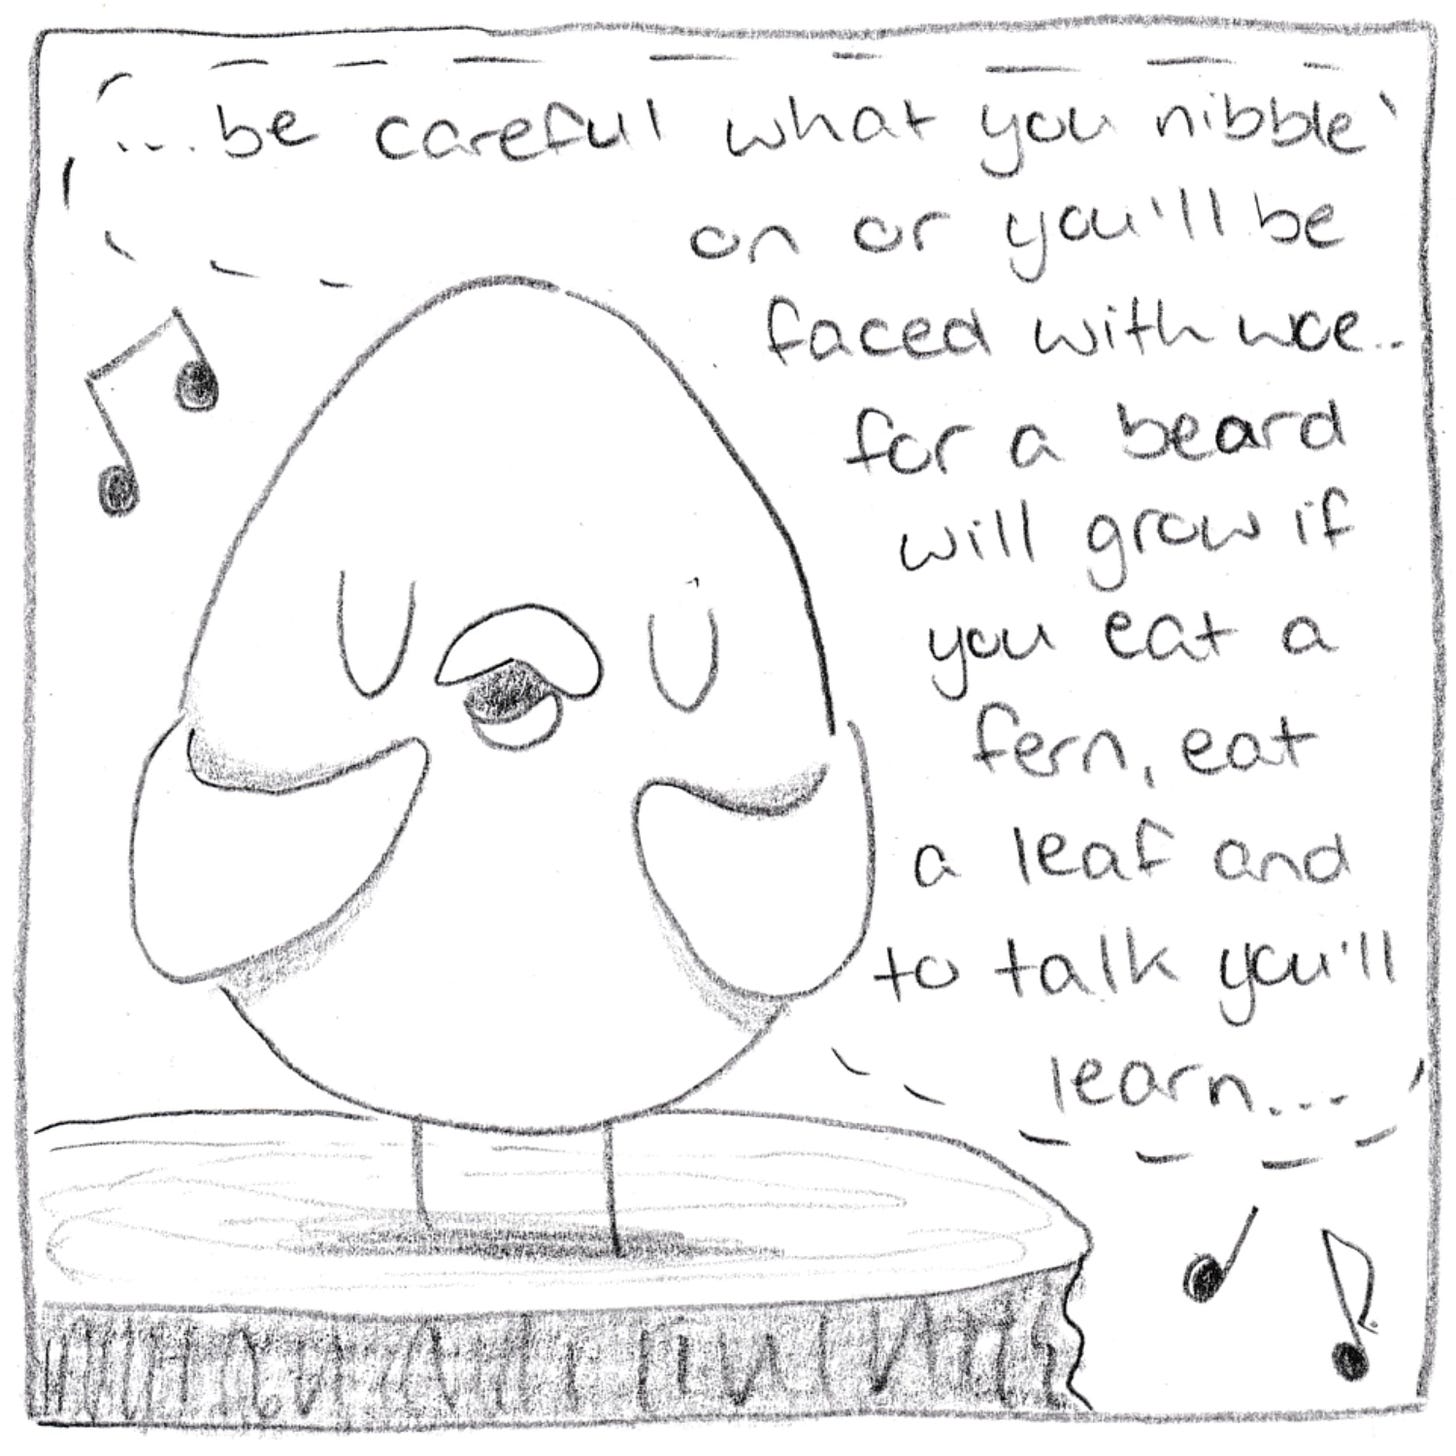 ...be careful what you nibble
on or you'll be
faced with woe..
for a beard
will grow if
you eat a
fern, eat
a leaf and
to talk you'll
learn...